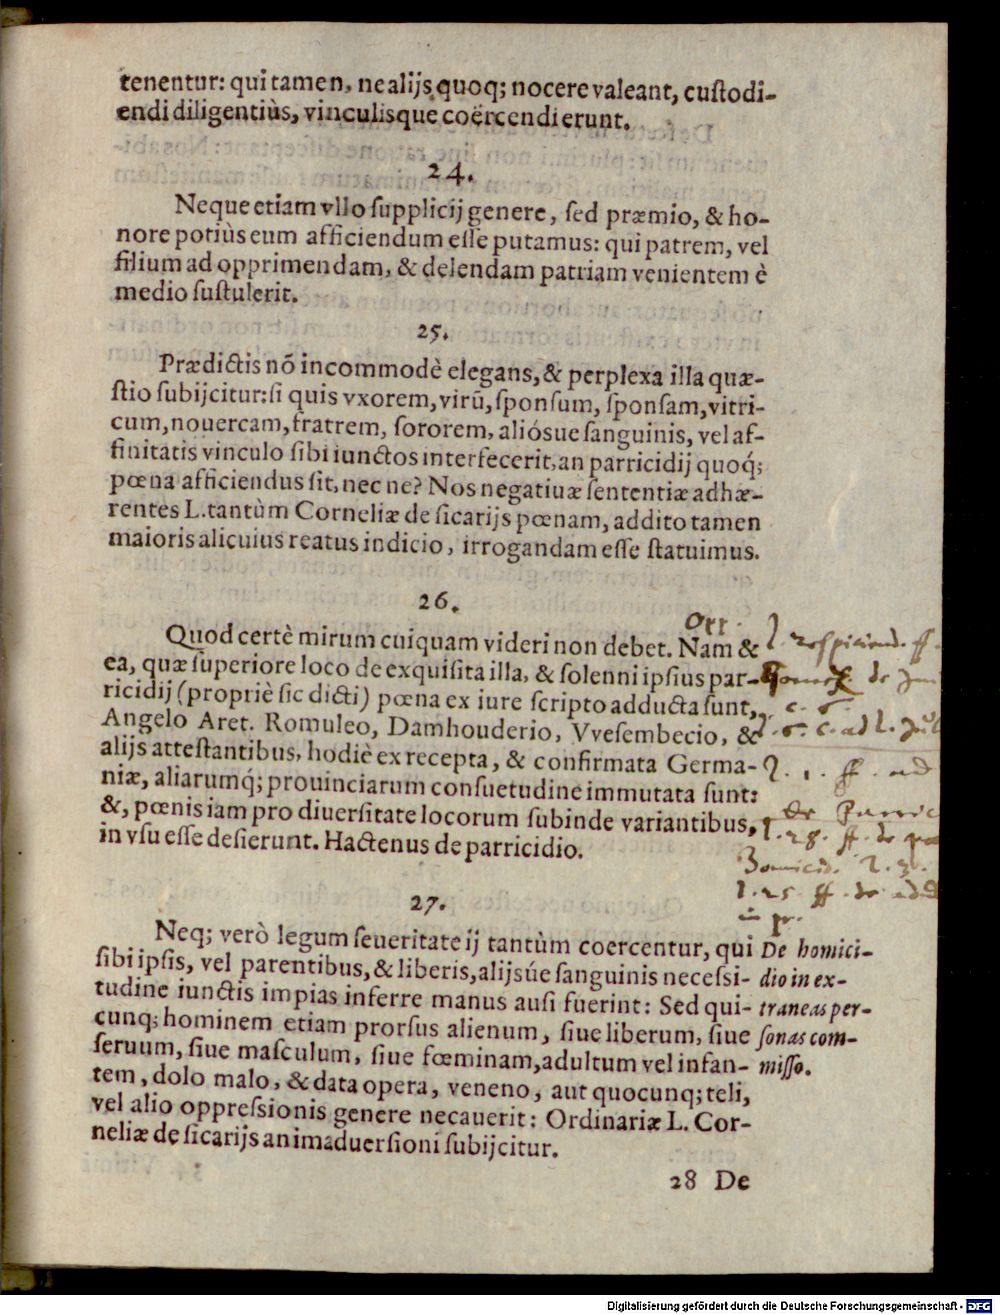 tenentur: qui tamen, ne alijs quoq; nocere valeant, custodi-
endi diligentiùs, vinculisque coërcendi erunt.
24.
Neque etiam vllo supplicij genere, sed præmio, & ho-
nore potiùs eum afficiendum esse putamus: qui patrem, vel
filium ad opprimendam, & delendam patriam venientem è
medio sustulerit.
25.
Prædictis nõ incommodè elegans, & perplexa illa quæ-
stio subijcitur: si quis vxorem, virũ, sponsum, sponsam, vitri-
cum, nouercam, fratrem, sororem, aliósue sanguinis, vel af-
finitatis vinculo sibi iunctos interfecerit, an parricidij quoq́;
pœna afficiendus sit, nec ne? Nos negatiuæ sententiæ adhæ-
rentes L. tantùm Corneliæ de sicarijs pœnam, addito tamen
maioris alicuius reatus indicio, irrogandam esse statuimus.
26.
Quod certè mirum cuiquam videri non debet. Nam &
ea, quæ superiore loco de exquisita illa, & solenni ipsius par-
ricidij (propriè sic dicti) pœna ex iure scripto adducta sunt,
Angelo Aret. Romuleo, Damhouderio, Vvesembecio, &
alijs attestantibus, hodiè ex recepta, & confirmata Germa-
niæ, aliarumq́; prouinciarum consuetudine immutata sunt:
&, pœnis iam pro diuersitate locorum subinde variantibus,
in vsu esse desierunt. Hactenus de parricidio.
l. respiciend. ff.
de
c. 6.
l. 6. c. ad l. Jul
l. 1. ff. ad
de Parric
l. 28. ff. de
homicid. l. 3.
l. 25. ff. de
in pr.
27.
Neq; verò legum seueritate ij tantùm coercentur, qui
sibi ipsis, vel parentibus, & liberis, alijsúe sanguinis necessi-
tudine iunctis impias inferre manus ausi fuerint: Sed qui-
cunq; hominem etiam prorsus alienum, siue liberum, siue
seruum, siue masculum, siue fœminam, adultum vel infan-
tem, dolo malo, & data opera, veneno, aut quocunq; teli,
vel alio oppressionis genere necauerit: Ordinariæ L. Cor-
neliæ de sicarijs animaduersioni subijcitur.
De homici-
dio in ex-
traneas per-
sonas com-
misso.
28 De
Digitalisierung gefördert durch die Deutsche Forschungsgemeinschaft - DFG